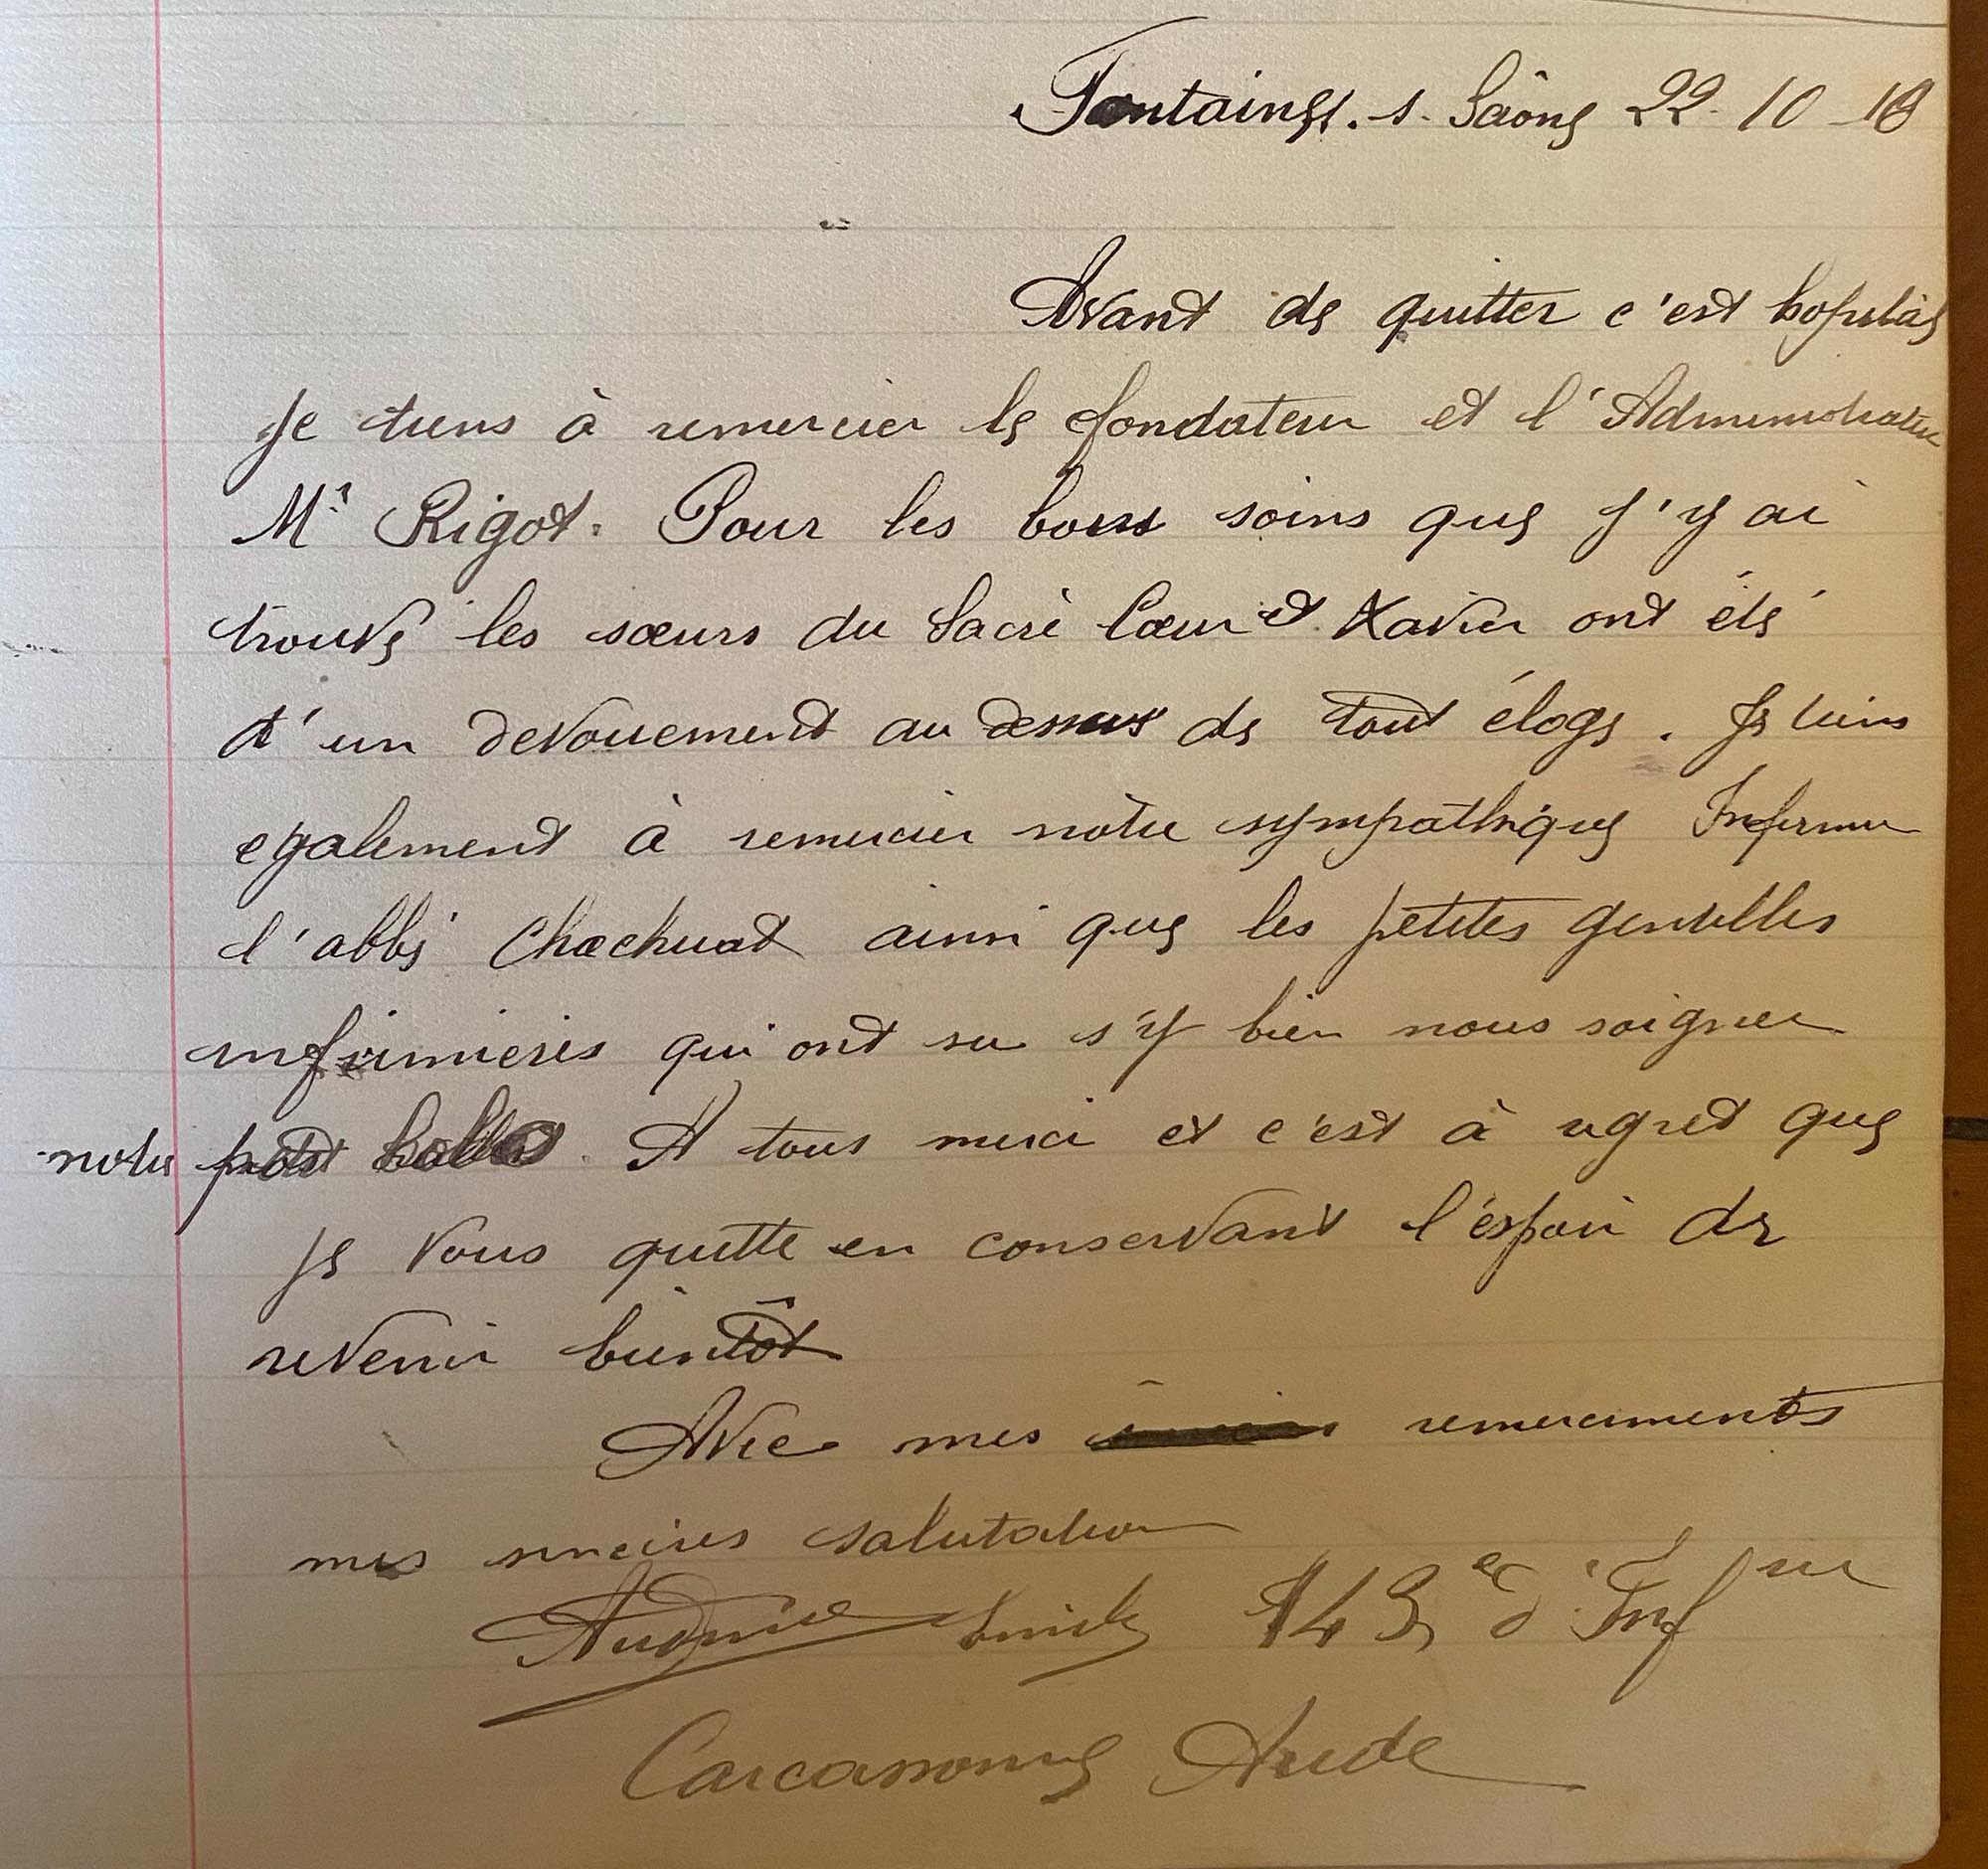 Fontaines. s. Saône 22. 10 - 18
Avant de quitter c'est hopital
Je tiens à remercier le fondateur et l'Administrateur
Mr Rigot. Pour les bons soins que j'y ai
trouvé les sœurs du Sacré Cœur et Xavier ont été
d'un devouement au dessus de tout éloge. Je tiens
egalement à remercier notre sympathique Infirmier
l'abbé Chachuat ainsi que les petites gentilles
infirmieres qui ont su s'y bien nous soigner
notre petit A tous merci et c'est à regret que
je vous quitte en conservant l'éspoir de
revenir bientôt
Avec mes remerciments
mes sinceres salutation
Emile 143e d'Infrie
Carcassonne Aude